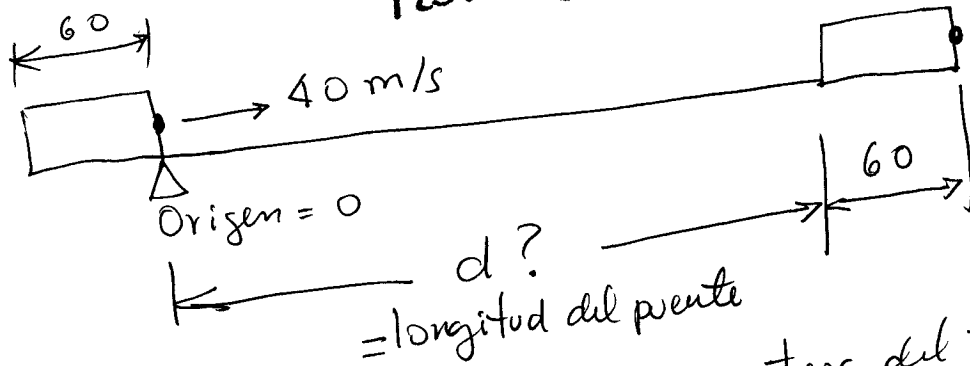 60
40 m/s
60
Origen = 0
d ?
= longitud del puente
del